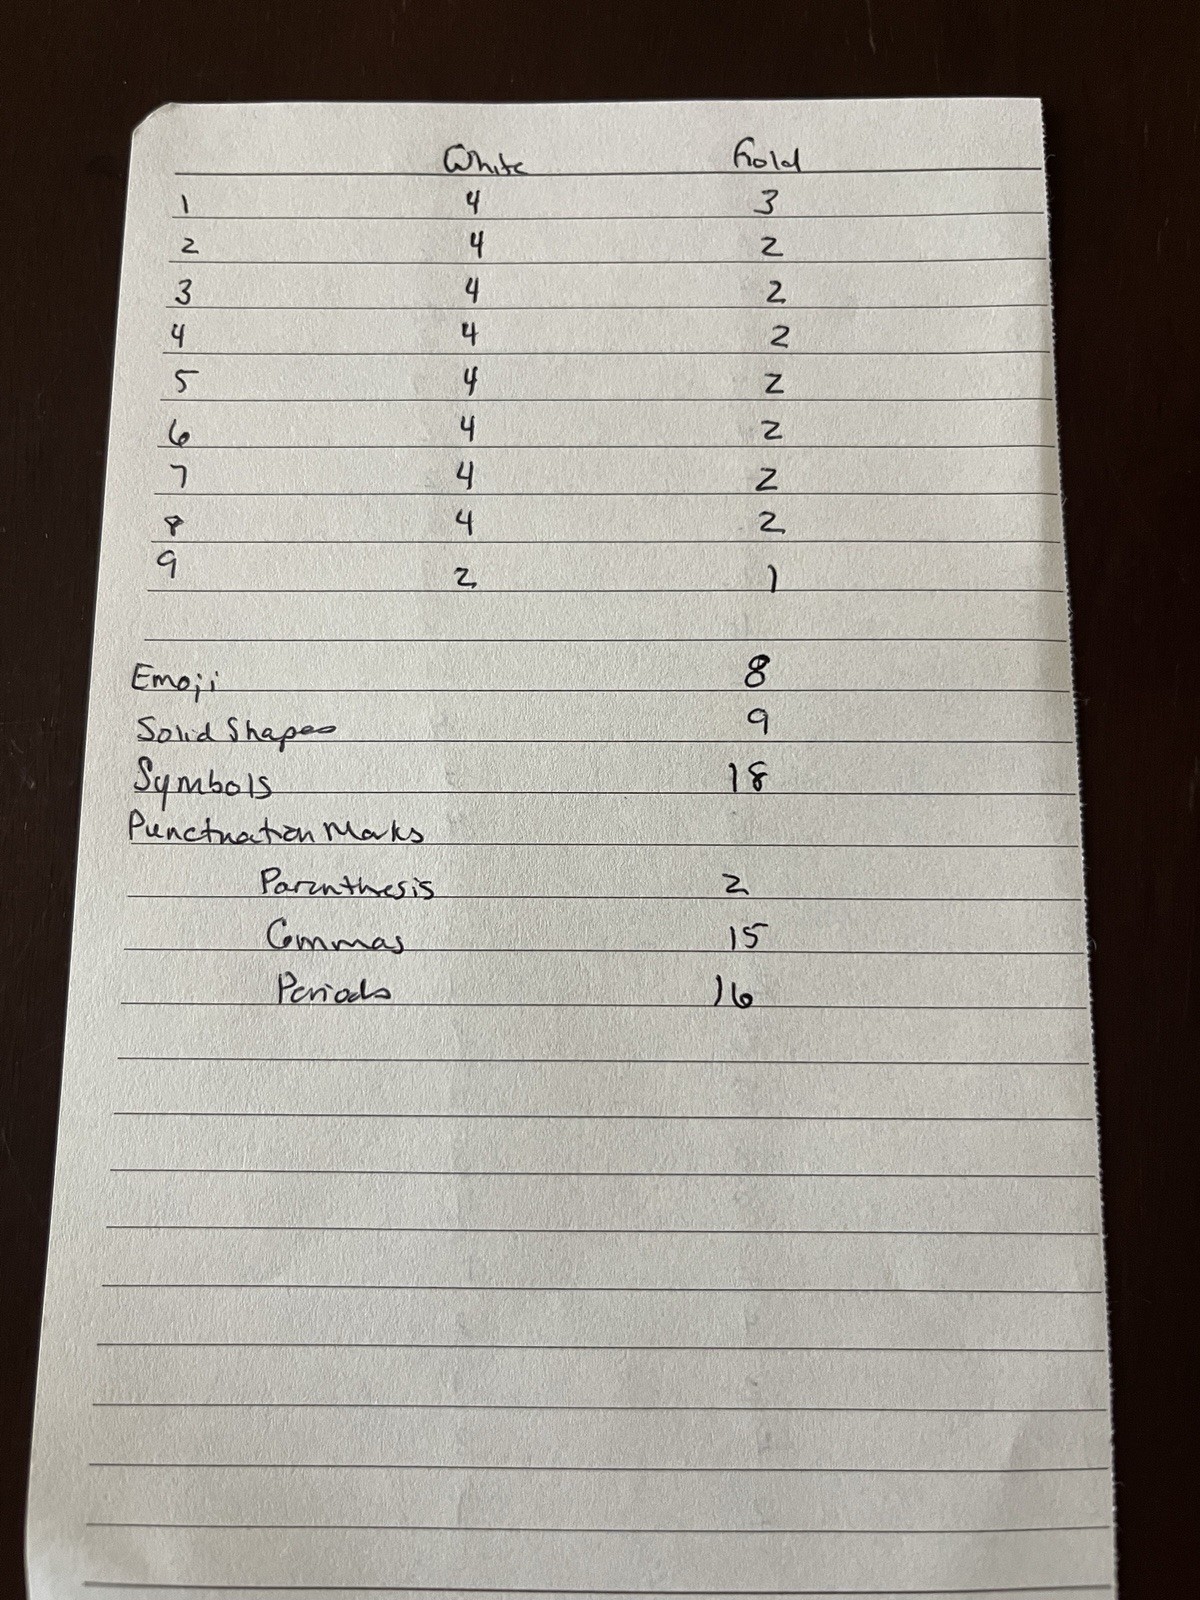 White Gold
1 4 3
2 4 2
3 4 2
4 4 2
5 4 2
6 4 2
7 4 2
8 4 2
9 2 1
Emoji 8
Solid Shapes 9
Symbols 18
Punctuation Marks
Parenthesis 2
Commas 15
Periods 16